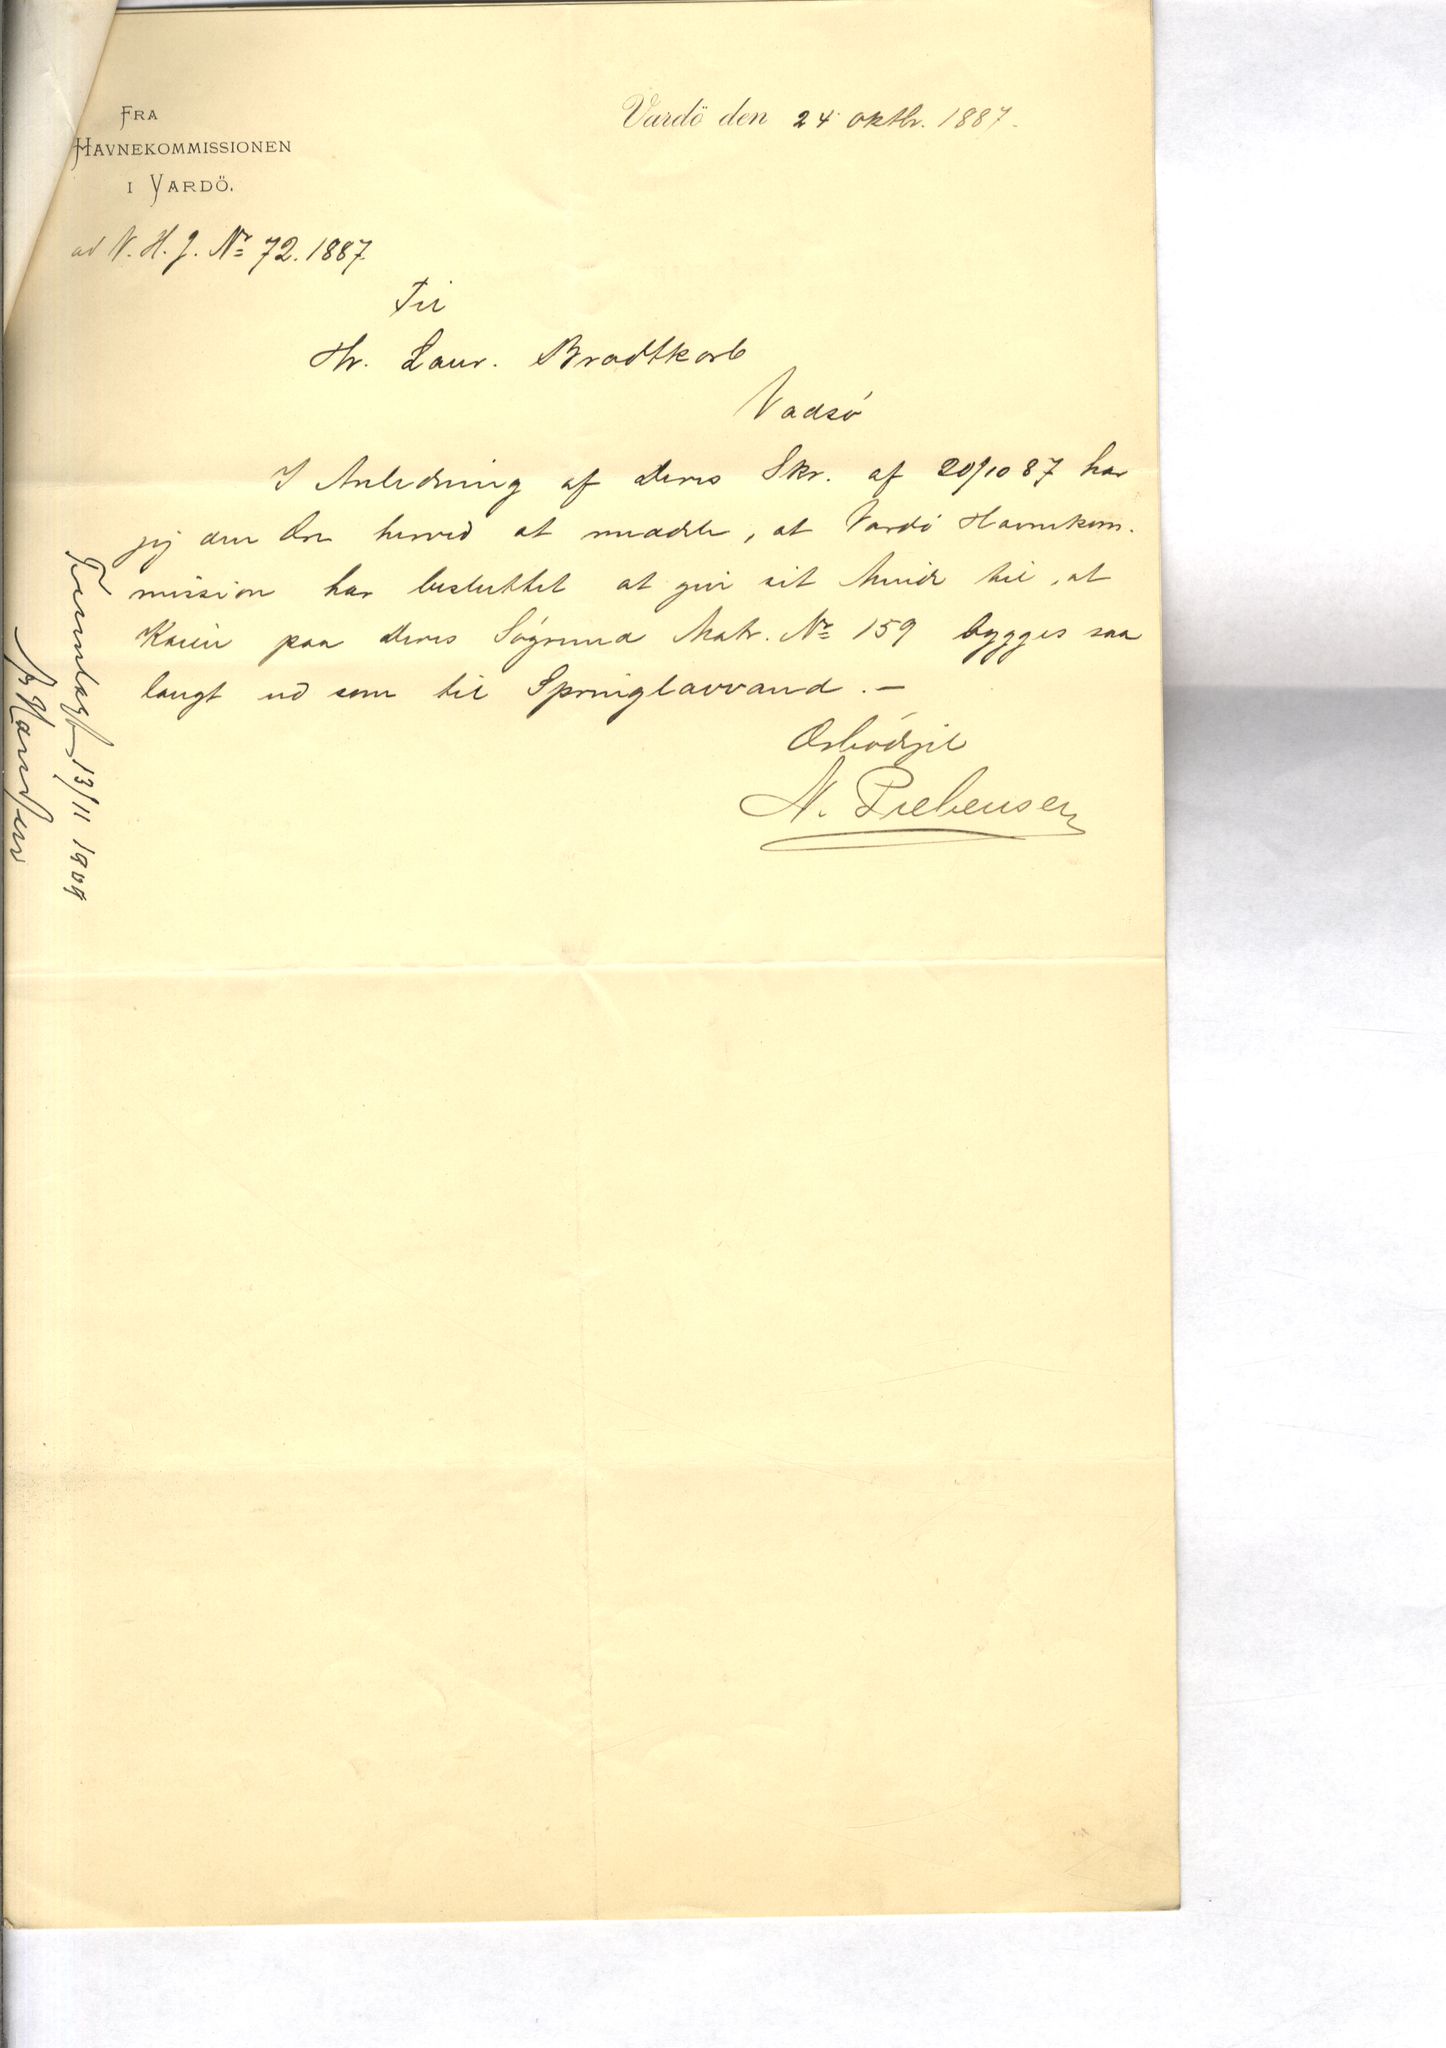 FRA
HAVNEKOMMISSIONEN
I VARDÖ.
Vardö den 24 oktbr. 1887.
ad V. H. J. No 72. 1887
Til
Hr. Laur. Brodtkorb
Vadsö
I Anledning af Deres Skr. af 20/10 87 har
jeg den Ære herved at meddele, at Vardö Havnekom-
mission har besluttet at give sit Minde til, at
Kaien paa Deres Sögrund Matr. No 159 bygges saa
langt ud som til Springlavvand. —
Ærbödigst
N. Prebensen
Fremlagt 13/11 1909